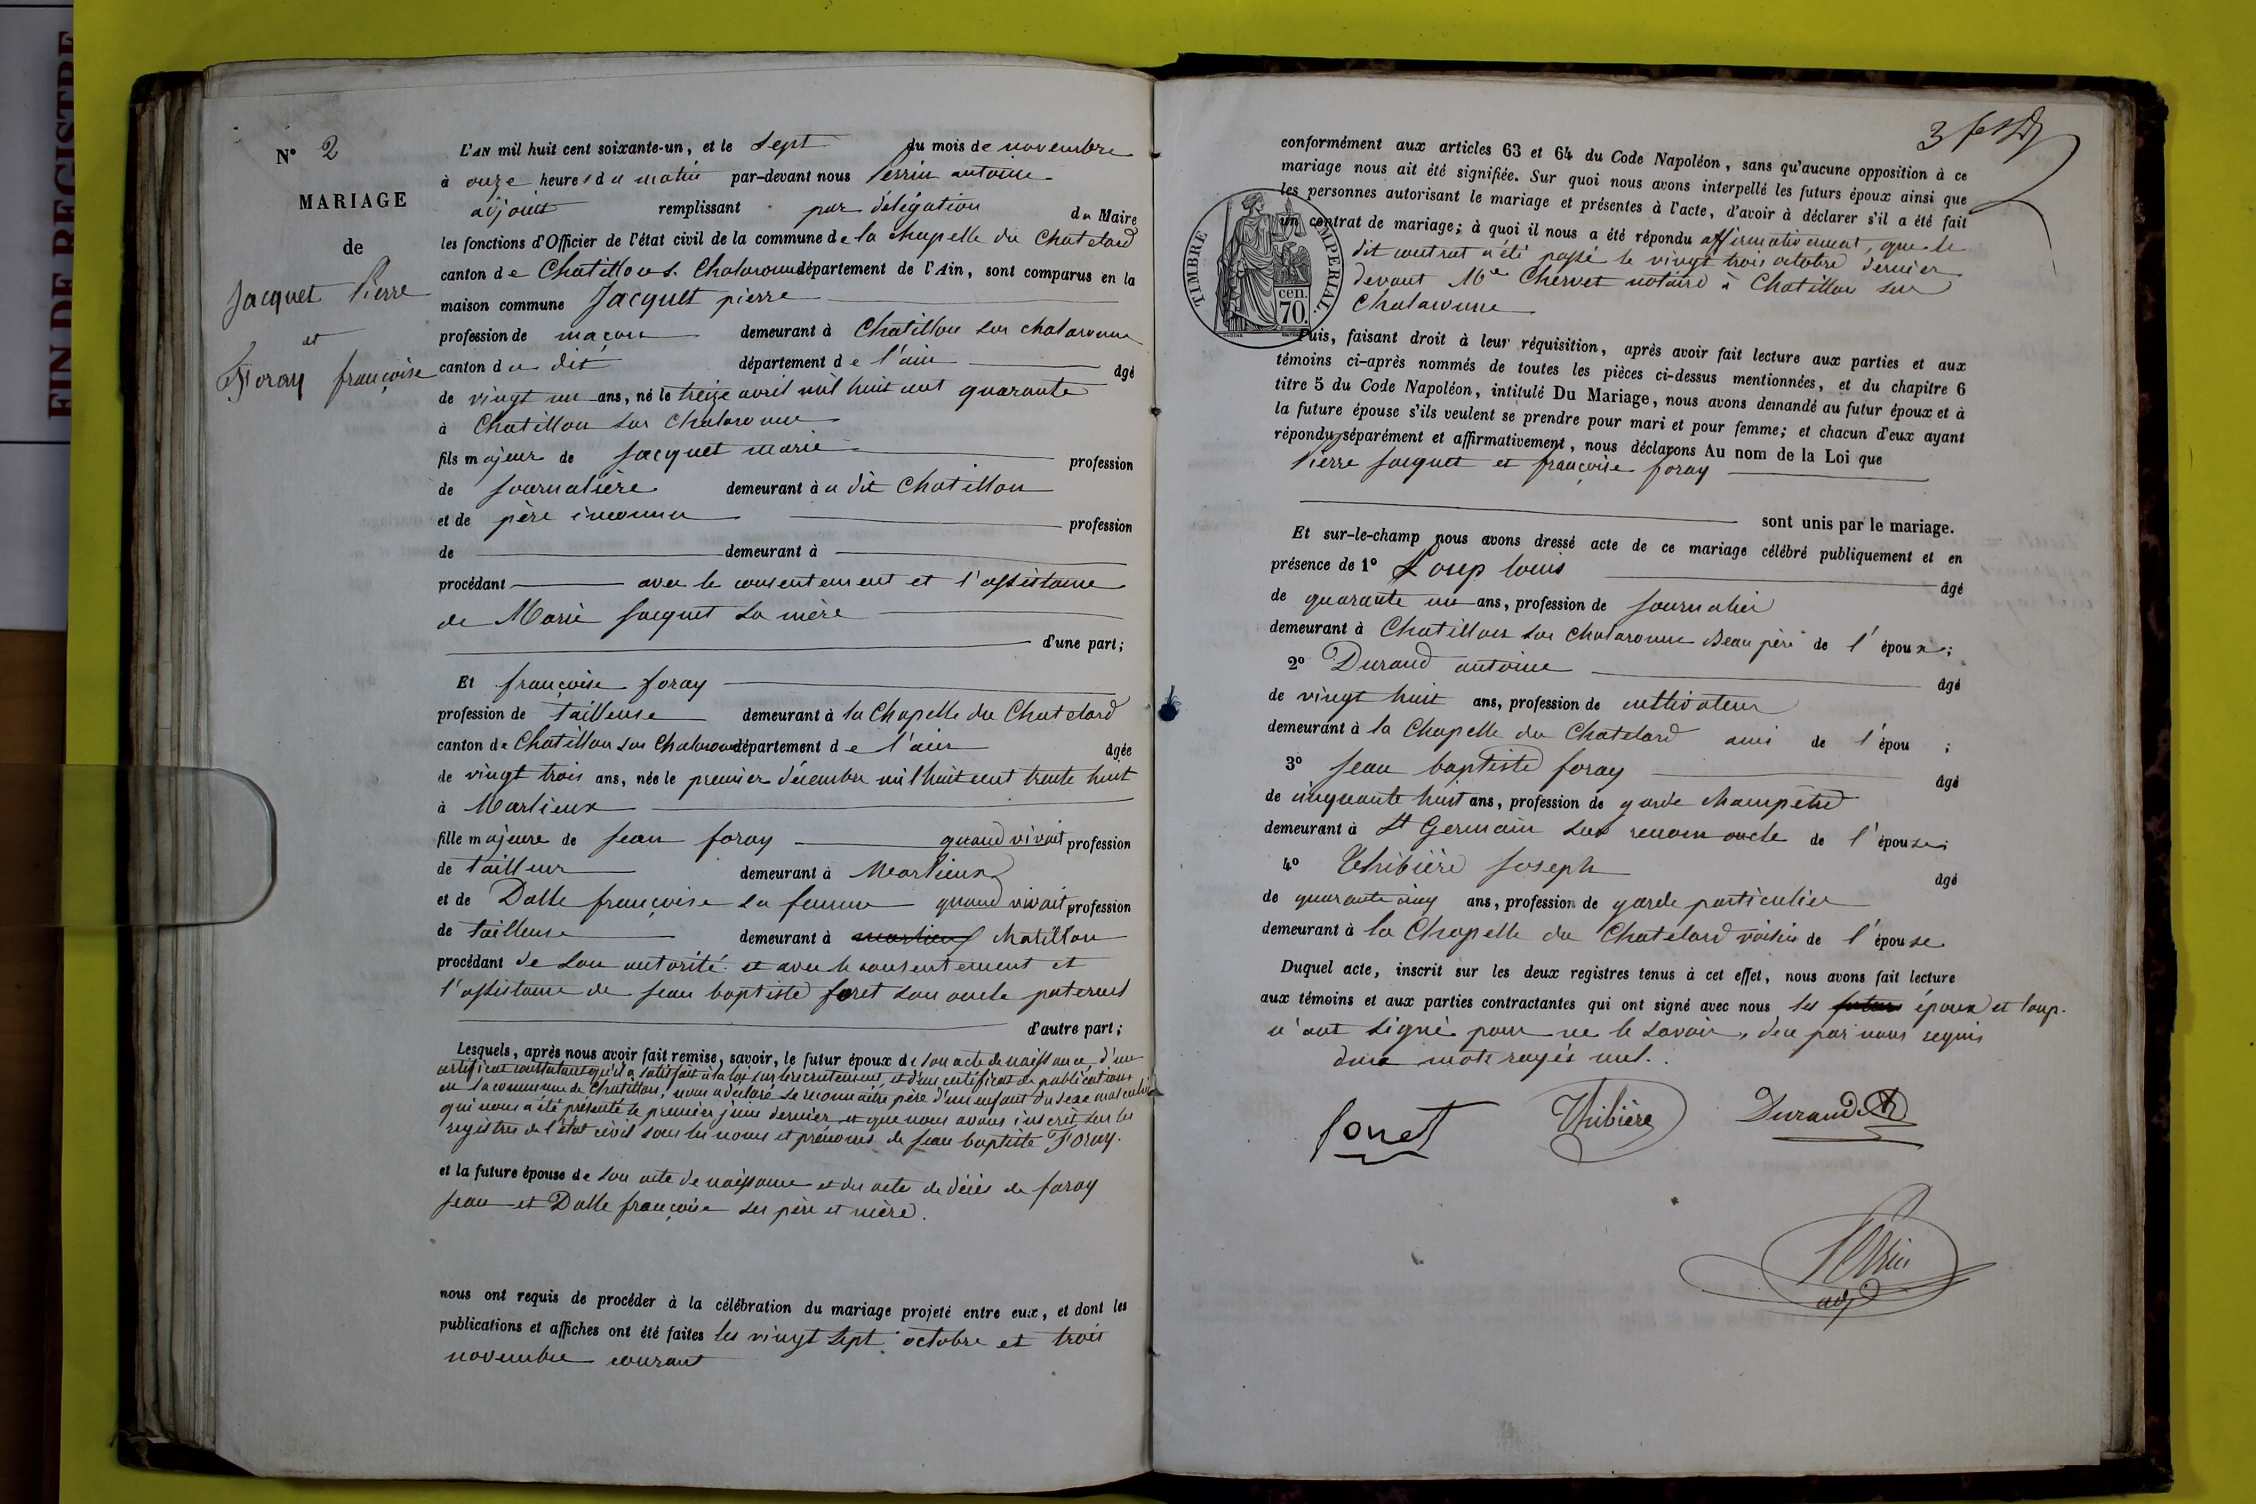 FIN DE REGISTRE
N° 2
MARIAGE
de
Jacquet Pierre
et
Foray françoise
L'AN mil huit cent soixante-un, et le sept du mois de novembre
à onze heures du matin par-devant nous Perrin antoine
adjoint remplissant par délégation du Maire
les fonctions d'Officier de l'état civil de la commune de la chapelle du Chatelard
canton de Chatillon s. Chalaronne département de l'Ain, sont comparus en la
maison commune Jacquet pierre
profession de maçon demeurant à Chatillon sur chalaronne
canton du dit département de l'ain âgé
de vingt un ans, né le treize avril mil huit cent quarante
à Chatillon sur Chalaronne
fils majeur de Jacquet marie profession
de journalière demeurant à u dit Chatillon
et de père inconnu profession
de demeurant à
procédant avec le consentement et l'assistance
de Marie Jacquet sa mère
d'une part;
Et françoise foray
profession de tailleuse demeurant à la Chapelle du Chatelard
canton de Chatillon sur Chalaronne département de l'ain âgée
de vingt trois ans, née le premier décembre mil huit cent trente huit
à Marlieux
fille majeure de jean foray quand vivait profession
de tailleur demeurant à Marlieux
et de Dalle françoise sa femme quand vivait profession
de tailleuse demeurant à marlieux chatillon
procédant de son autorité et avec le consentement et
l'assistance de jean baptiste foret son oncle paternel
d'autre part;
Lesquels, après nous avoir fait remise, savoir, le futur époux de son acte de naissance d'un
certificat constatant qu'il a satisfait à la loi sur le recrutement, et d'un certificat de publications
en la commune de Chatillon, nous a déclaré se reconnaitre père d'un enfant du sexe masculin
qui nous a été présenté le premier juin dernier et que nous avons inscrit sur les
registres de l'état civil sous les noms et prénoms de jean baptiste Foray.
et la future épouse de son acte de naissance et des acte de décès de foray
jean et Dalle françoise ses père et mère.
nous ont requis de procéder à la célébration du mariage projeté entre eux, et dont les
publications et affiches ont été faites les vingt sept octobre et trois
novembre courant
3
conformément aux articles 63 et 64 du Code Napoléon, sans qu'aucune opposition à ce
mariage nous ait été signifiée. Sur quoi nous avons interpellé les futurs époux ainsi que
les personnes autorisant le mariage et présentes à l'acte, d'avoir à déclarer s'il a été fait
un contrat de mariage; à quoi il nous a été répondu affirmativement, que le
dit contrat a été passé le vingt trois octobre dernier
devant Me Chervet notaire à Chatillon sur
Chalaronne
TIMBRE IMPERIAL.
cen.
70.
Puis, faisant droit à leur réquisition, après avoir fait lecture aux parties et aux
témoins ci-après nommés de toutes les pièces ci-dessus mentionnées, et du chapitre 6
titre 5 du Code Napoléon, intitulé Du Mariage, nous avons demandé au futur époux et à
la future épouse s'ils veulent se prendre pour mari et pour femme; et chacun d'eux ayant
répondu séparément et affirmativement, nous déclarons Au nom de la Loi que
Pierre Jacquet et françoise foray
sont unis par le mariage.
Et sur-le-champ nous avons dressé acte de ce mariage célébré publiquement et en
présence de 1° louis âgé
de quarante un ans, profession de journalier
demeurant à Chatillon sur chalaronne Beau père de l'époux;
2° Durand antoine âgé
de vingt huit ans, profession de cultivateur
demeurant à la Chapelle du Chatelard ami de l'épou ;
3° jean baptiste foray âgé
de cinquante huit ans, profession de garde champêtre
demeurant à St Germain sur renom oncle de l'épouse;
4° Thibière joseph âgé
de quarante cinq ans, profession de garde particulier
demeurant à la Chapelle du Chatelard voisin de l'épouse
Duquel acte, inscrit sur les deux registres tenus à cet effet, nous avons fait lecture
aux témoins et aux parties contractantes qui ont signé avec nous les futurs époux et loup.
n'ont signé pour ne le savoir, de ce par nous requis
deux mots rayés nul.
foret Thibière Durand
Perrin
adj